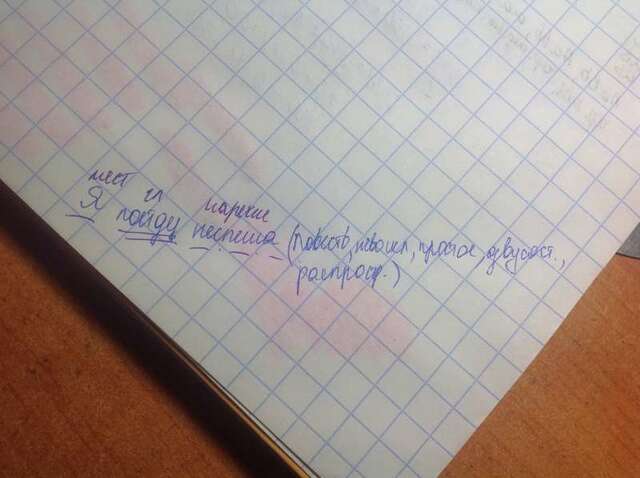 мест гл наречие
Я пойду неспеша (повеств, невоскл, простое, двусост.,
распростр.)